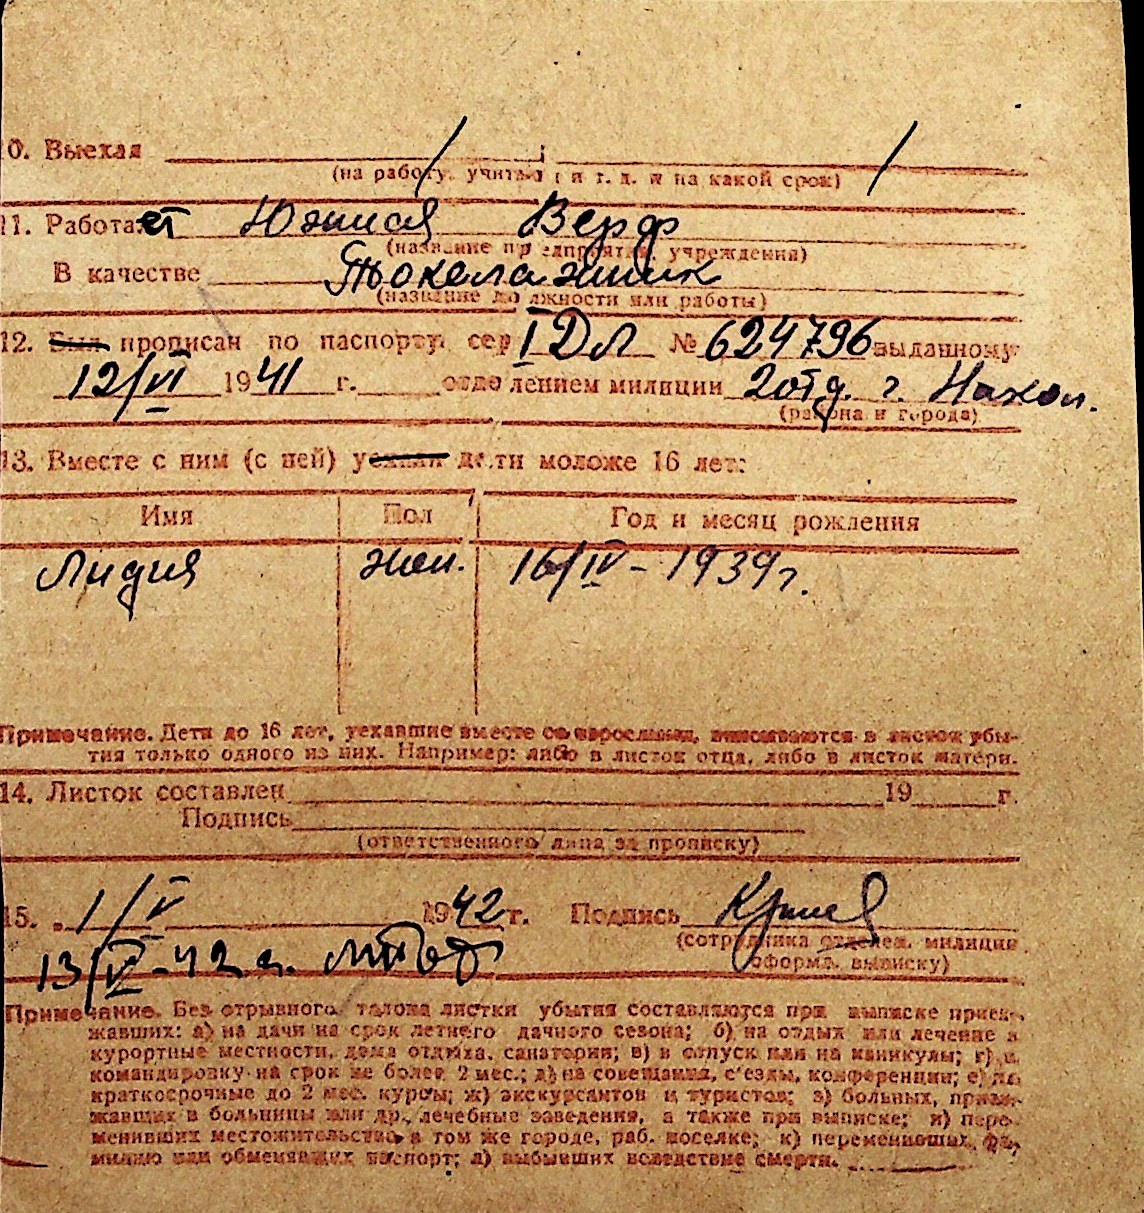 10. Выехал
(на работу, учиться и т. д. и на какой срок)
11. Работает Южная Верф
(название предприятия, учреждения)
В качестве Такелажник
(название должности или работы)
12. Был прописан по паспорту сер I ДЛ № 624796 выданному
12/VI 1941 г. отделением милиции 2 отд. г. Накол.
(района и города)
13. Вместе с ним (с ней) уехали дети моложе 16 лет:
Имя Пол Год и месяц рождения
Лидия жен. 16/IV - 1939 г.
Примечание. Дети до 16 лет, уехавшие вместе со взрослыми, вписываются в листок убы-
тия только одного из них. Например: либо в листок отца, либо в листок матери.
14. Листок составлен 19 г.
Подпись
(ответственного лица за прописку)
15. „ 1/V 1942 г. Подпись
(сотрудника отделен. милиции
оформ. выписку)
13/V - 42 г.
Примечание. Без отрывного талона листки убытия составляются при выписке приез-
жавших: а) на дачи на срок летнего дачного сезона; б) на отдых или лечение в
курортные местности, дома отдыха, санатории; в) в отпуск или на каникулы; г) в
командировку на срок не более 2 мес.; д) на совещания, с'езды, конференции; е) на
краткосрочные до 2 мес. курсы; ж) экскурсантов и туристов; з) больных, приез-
жавших в больницы или др. лечебные заведения, а также при выписке; и) пере-
менивших местожительство в том же городе, раб. поселке; к) переменивших фа-
милию или обменявших паспорт; л) выбывших вследствие смерти.